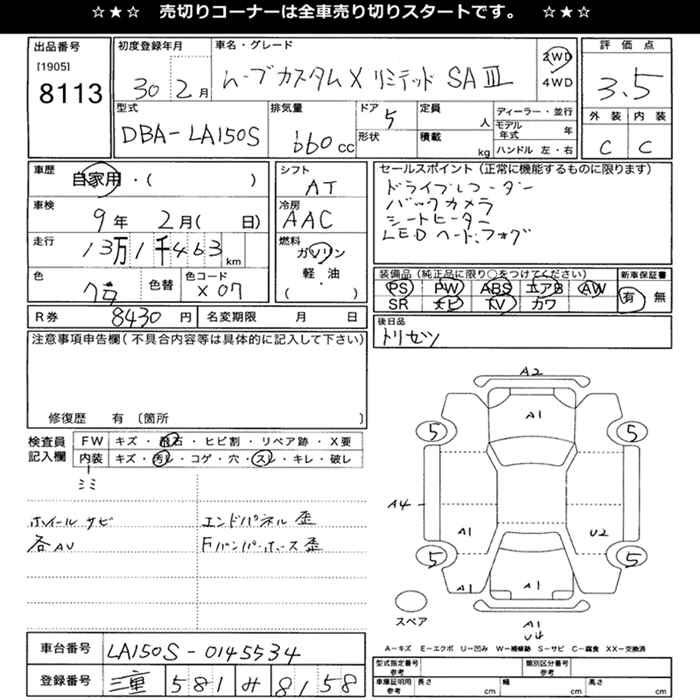 ☆★☆ 売切りコーナーは全車売り切りスタートです。 ☆★☆
出品番号
[1905]
8113
初度登録年月
30年 2月
車名・グレード
ムーブカスタムX リミテッド SAⅢ
2WD
4WD
評価点
3.5
外装 内装
C C
型式
DBA-LA150S
排気量
660 cc
ドア
5
形状
定員
人
積載
kg
ディーラー・並行
モデル年式 年
ハンドル 左・右
車歴
自家用・( )
車検
9年 2月( 日)
走行
13万1千463 km
色
色替
色コード
X07
シフト
AT
冷房
AAC
燃料
ガソリン
軽・油
( )
セールスポイント(正常に機能するものに限ります)
ドライブレコーダー
バックカメラ
シートヒーター
LEDヘッド、フォグ
装備品(純正品に限り○をつけてください)
PS PW ABS エアB AW
SR ナビ TV カワ
新車保証書
有 無
R券 8430円 名変期限 月 日
後日品
トリセツ
注意事項申告欄(不具合内容等は具体的に記入して下さい)
修復歴 有 〔箇所 〕
検査員記入欄
FW キズ・飛石・ヒビ割・リペア跡・X要
内装 キズ・汚レ・コゲ・穴・スレ・キレ・破レ
ミミ
ホイール サビ
各AU
エンドパネル 歪
Fバンパーホース 歪
A2
A1
5 5
A4
A1 U2
5 5
A1 A1
A1
U4
スペア
A-キズ E-エクボ U-凹み W-補修跡 S-サビ C-腐食 XX-交換済
車台番号 LA150S-0145534
登録番号 三重 581 み 8158
型式指定番号
参考
類別区分番号
参考
車庫証明用
参考
長さ cm
幅 cm
高さ cm